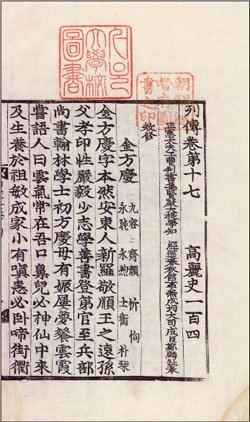 서울大學校圖書
朝鮮總督府圖書之印
列傳卷第十七 高麗史一百四
正憲大夫工曹判書集賢殿大提學知 經筵春秋館事兼成均大司成臣鄭麟趾奉
敎修
金方慶 九容 齊顔 忻 恂
永旽 永煦 士衡 朴球
金方慶字本然安東人新羅敬順王之遠孫
父孝印性嚴毅少志學善書登第官至兵部
尚書翰林學士初方慶母有娠屢夢餐雲霞
嘗語人曰雲氣常在吾口鼻兒必神仙中來
及生養於祖敏成家小有嗔恚必臥啼街衢